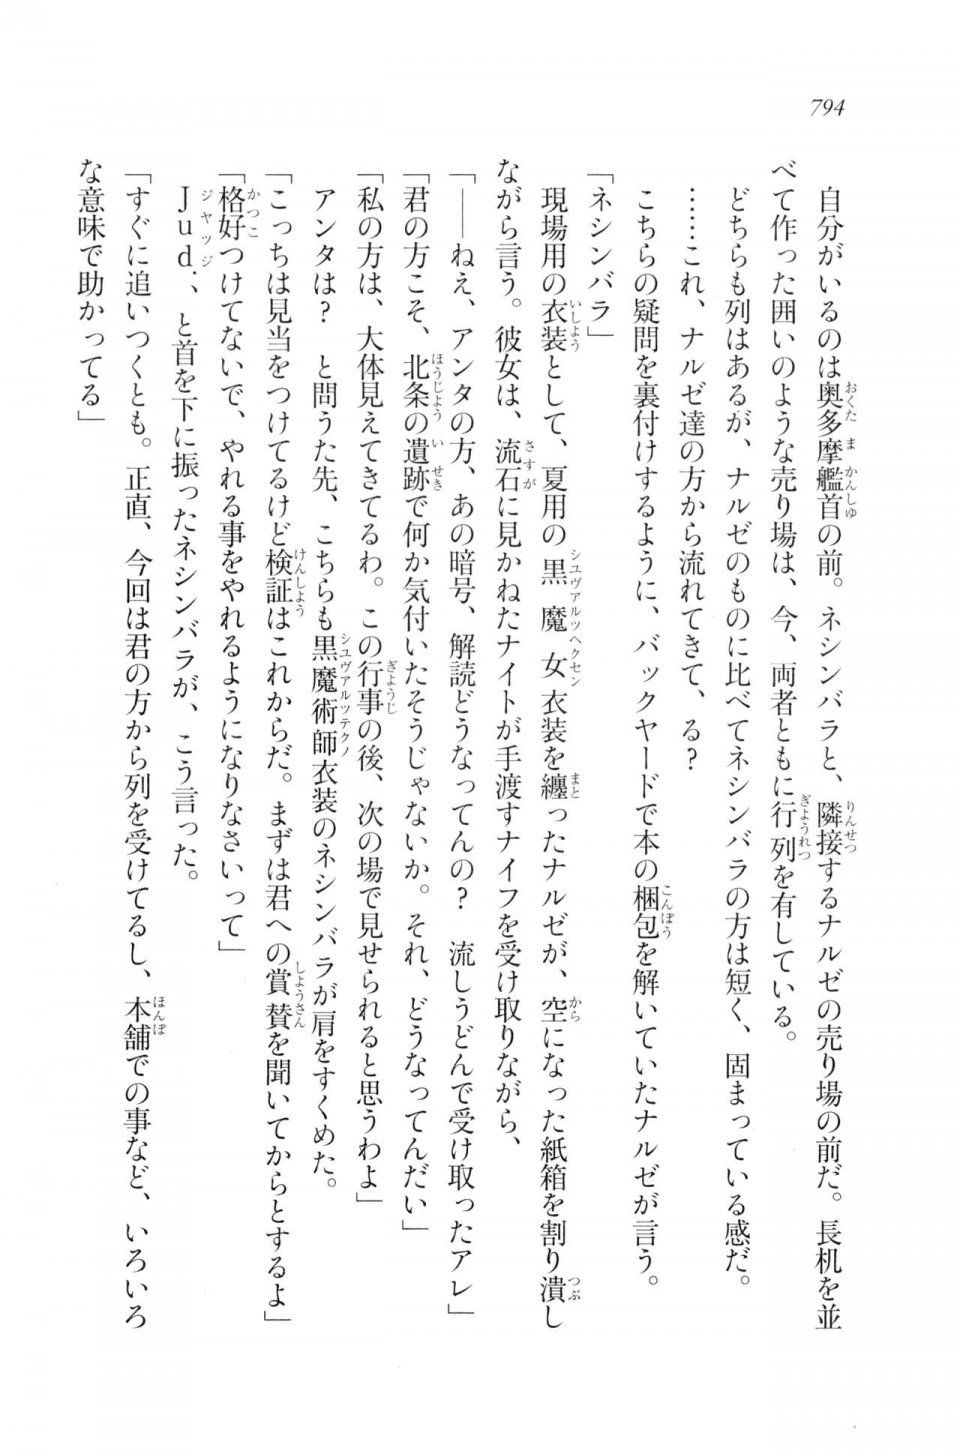 794
自分がいるのは奥多摩艦首の前。ネシンバラと、隣接するナルゼの売り場の前だ。長机を並
べて作った囲いのような売り場は、今、両者ともに行列を有している。
どちらも列はあるが、ナルゼのものに比べてネシンバラの方は短く、固まっている感だ。
……これ、ナルゼ達の方から流れてきて、る？
こちらの疑問を裏付けするように、バックヤードで本の梱包を解いていたナルゼが言う。
「ネシンバラ」
現場用の衣装として、夏用の黒魔女衣装を纏ったナルゼが、空になった紙箱を割り潰し
ながら言う。彼女は、流石に見かねたナイトが手渡すナイフを受け取りながら、
「――ねえ、アンタの方、あの暗号、解読どうなってんの？　流しうどんで受け取ったアレ」
「君の方こそ、北条の遺跡で何か気付いたそうじゃないか。それ、どうなってんだい」
「私の方は、大体見えてきてるわ。この行事の後、次の場で見せられると思うわよ」
アンタは？　と問うた先、こちらも黒魔術師衣装のネシンバラが肩をすくめた。
「こっちは見当をつけてるけど検証はこれからだ。まずは君への賞賛を聞いてからとするよ」
「格好つけてないで、やれる事をやれるようになりなさいって」
Jud.、と首を下に振ったネシンバラが、こう言った。
「すぐに追いつくとも。正直、今回は君の方から列を受けてるし、本舗での事など、いろいろ
な意味で助かってる」